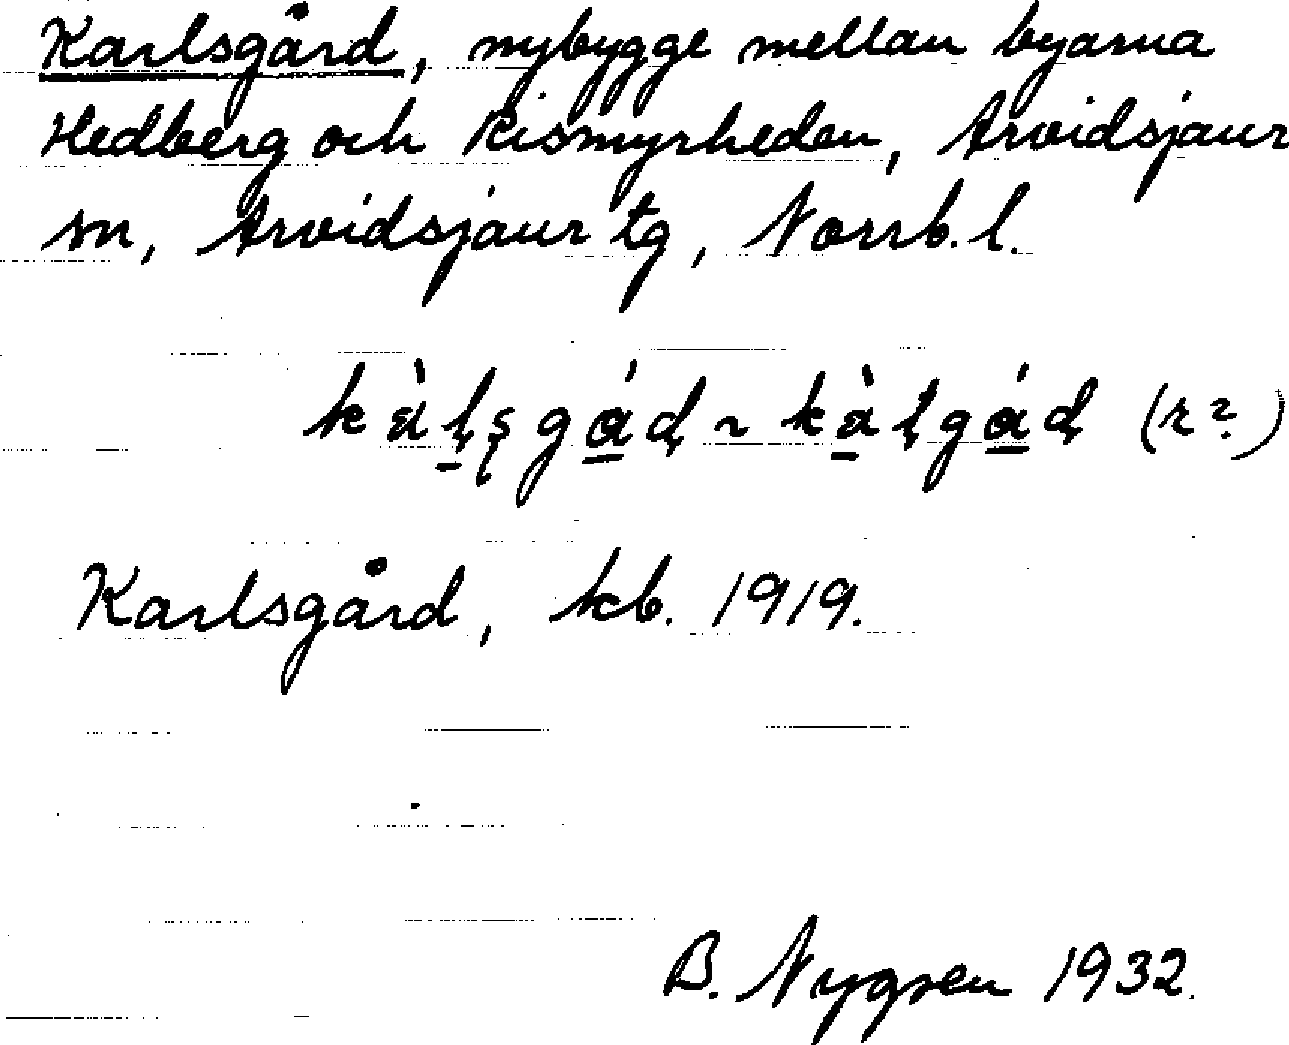 Karlsgård, nybygge mellan byarna
Hedberg och Rismyrheden, Arvidsjaur
sn, Arvidsjaur tg, Norrb. l.
(r?)
Karlsgård, kb. 1919.
B. Nygren 1932.